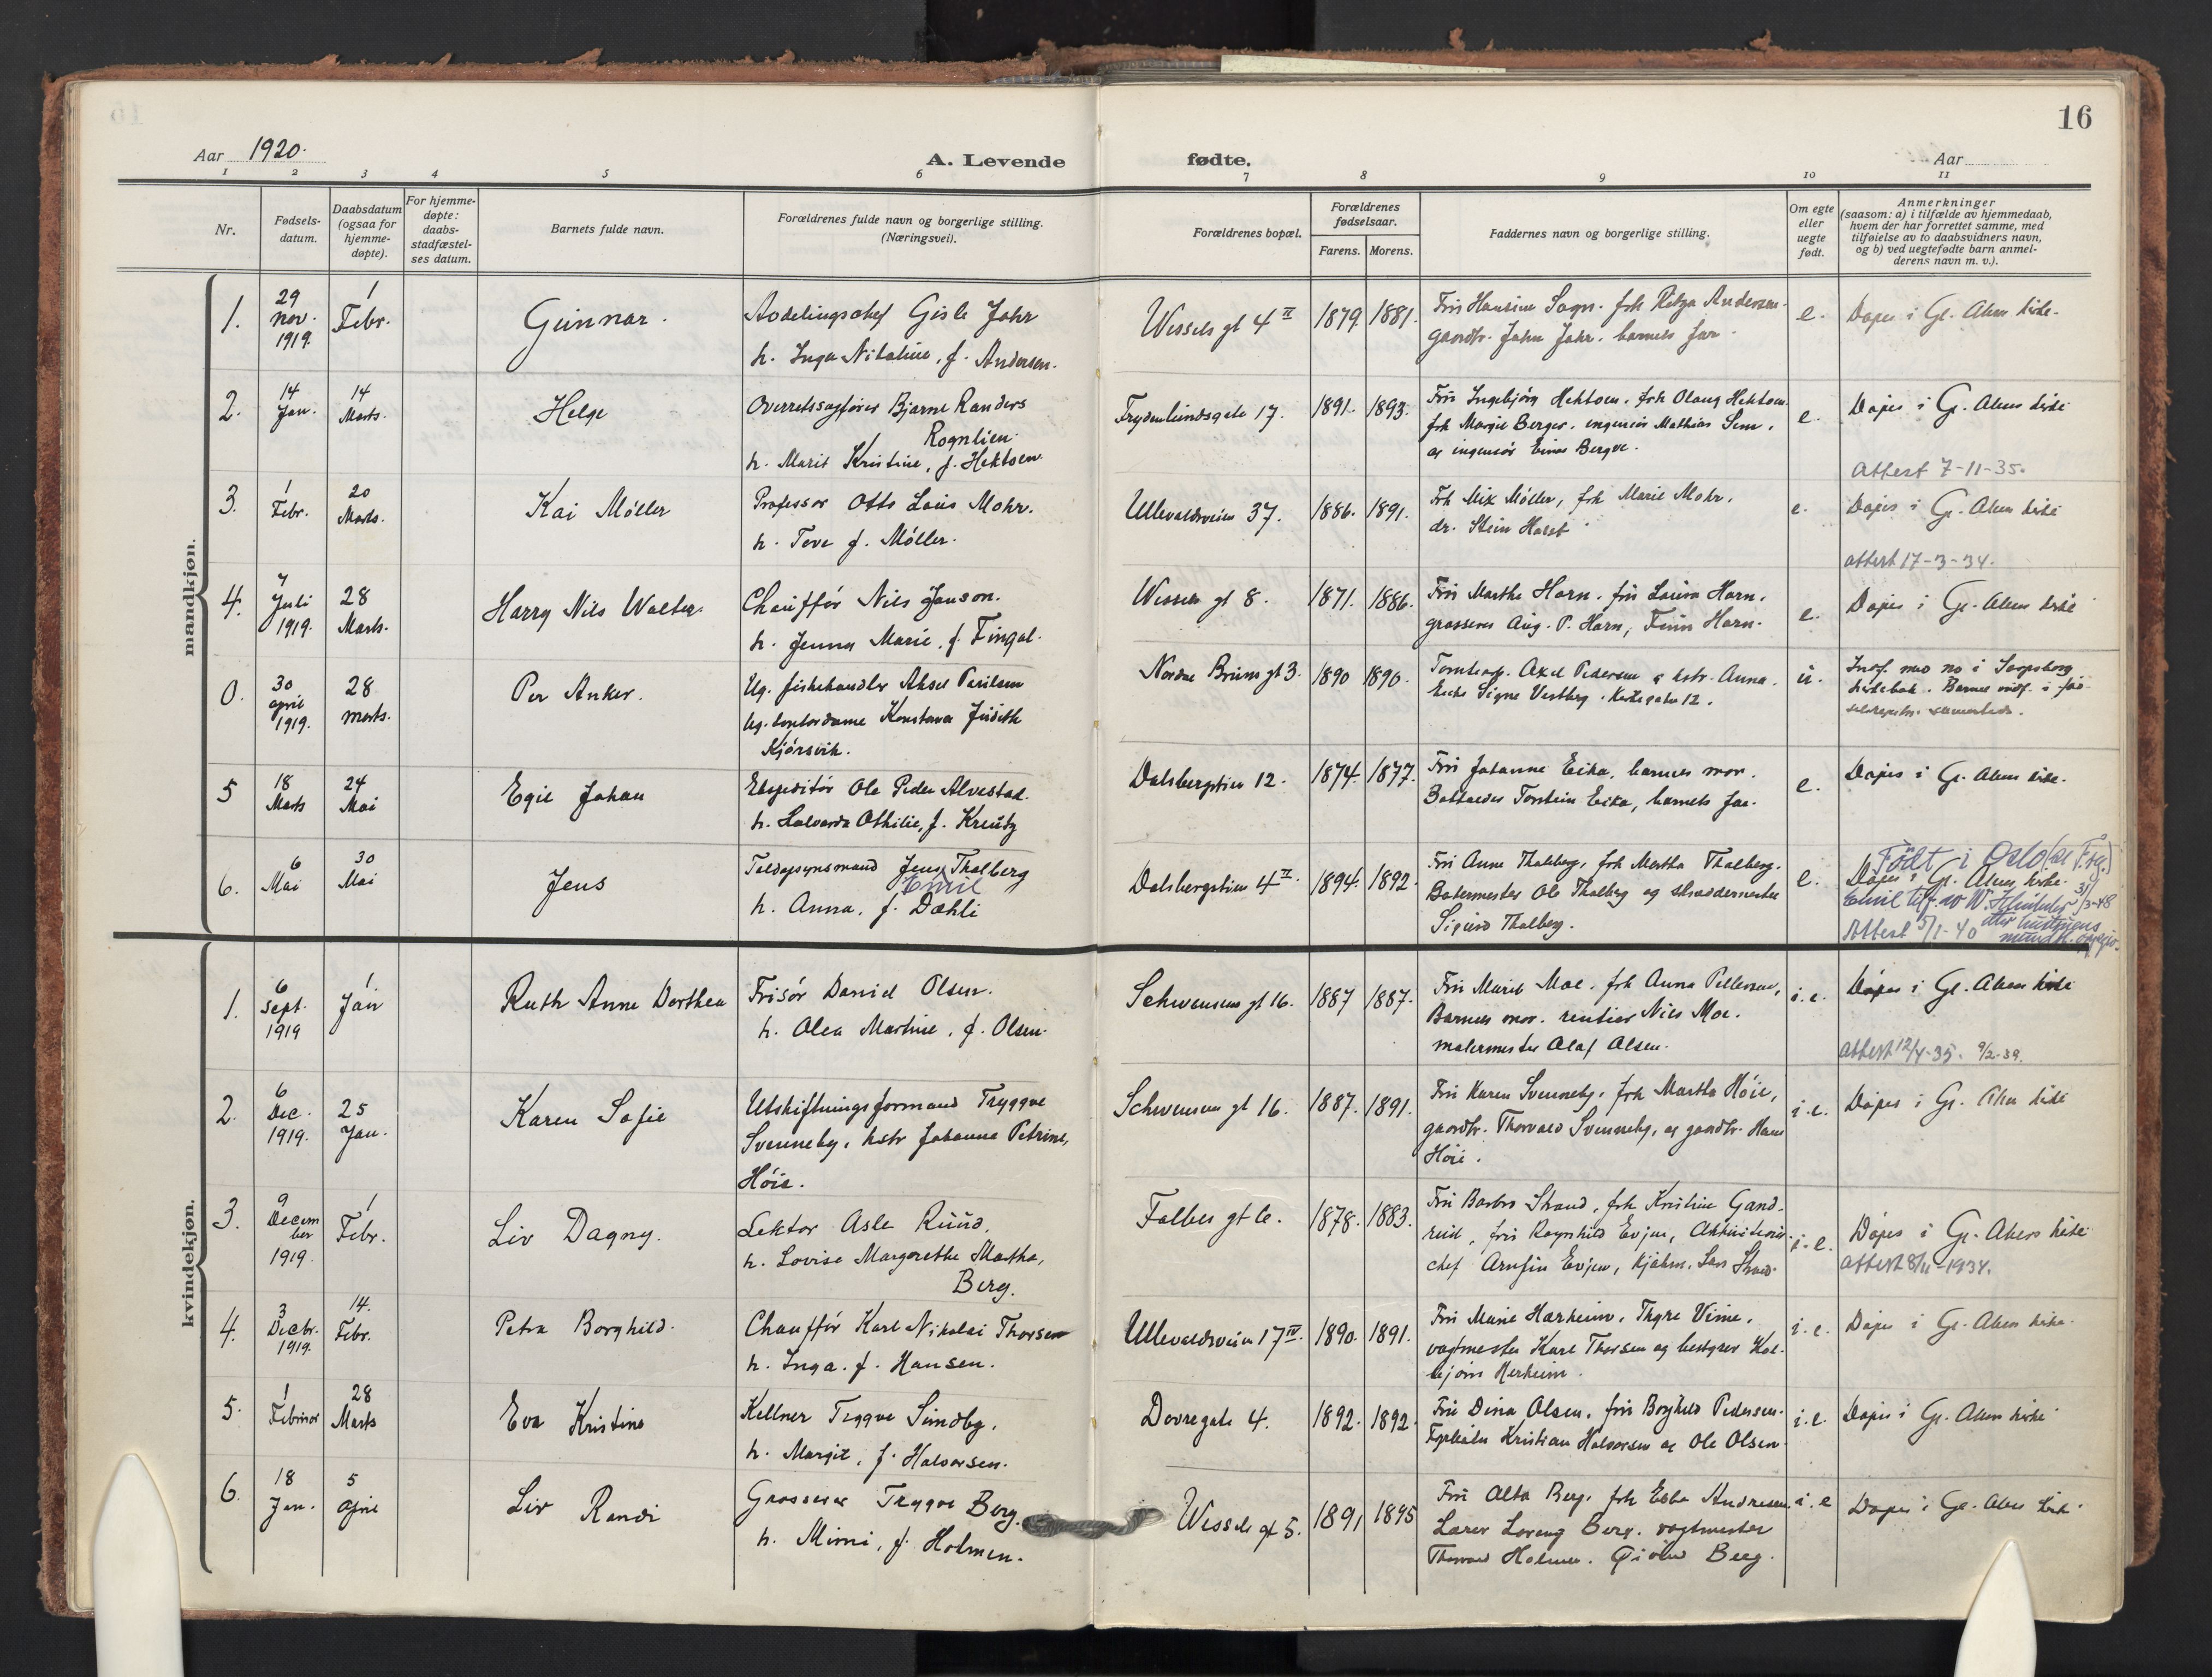 16
Aar 1920.
A. Levende fødte.
Aar
1 2 3 4 5 6 7 8 9 10 11
Nr.
Fødsels-
datum.
Daabsdatum
(ogsaa for
hjemme-
døpte).
For hjemme-
døpte:
daabs-
stadfæstel-
ses datum.
Barnets fulde navn.
Forældrenes fulde navn og borgerlige stilling.
(Næringsvei).
Forældrenes bopæl.
Forældrenes
fødselsaar.
Farens. Morens.
Faddernes navn og borgerlige stilling.
Om egte
eller
uegte
født.
Anmerkninger
(saasom: a) i tilfælde av hjemmedaab,
hvem der har forrettet samme, med
tilføielse av to daabsvidners navn,
og b) ved uegtefødte barn anmel-
derens navn m. v.).
mandkjøn.
1.
29
Nov.
1919.
1
Febr.
Gunnar.
Avdelingschef Gisle Jahr
h. Inga Nikoline, f. Andersen.
Wessels gt 4 II
1879 1881.
Fru Hansine Sogn. frk Helga Andersen.
gaardbr. John Jahr. barnets far.
e.
Døpes i Gl. Akers kirke.
2.
14
Jan.
14
Marts.
Helge
Overretssagfører Bjarne Randers
Rognlien.
h. Marit Kristine, f. Hektoen.
Frydenlundsgate 17.
1891. 1893.
Fru Ingebjørg Hektoen, frk Olaug Hektoen.
frk Margit Berger, ingeniør Mathias Sem,
og ingeniør Einar Bergve.
e.
Døpes i Gl. Akers kirke
Attest 7-11-35.
3.
1
Febr.
20
Marts.
Kai Møller
Professor Otto Louis Mohr.
h. Tove f. Møller.
Ullevaldsveien 37.
1886. 1891.
Frk Mix Møller, frk Marie Mohr.
dr. Stein
e.
Døpes i Gl. Akers kirke
attest 17-3-34.
4.
7
Juli
1919.
28
Marts.
Harry Nils Walter.
Chauffør Nils Janson.
h. Jenny Marie, f. Fingal.
Wessels gt 8.
1871. 1886.
Fru Marthe Horn. fru Laura Horn,
grosserer Aug. P. Horn, Finn Horn.
e.
Døpes i Gl. Akers kirke
0.
30
april
1919.
28
marts.
Per Anker.
Ug. fiskehandler Aksel
Ug. kontordame Konstanse Judith
Kjørsvik.
Nordre Bruns gt 3.
1890 1890.
Axel Pedersen & hstr. Anna.
Signe Vestby. Kirkegaten 12.
u.
Indf. med no i Sarpsborg
kirkebok. Barnet indf. i fød-
5
18
Marts
24
Mai
Egil Johan
Ekspeditør Ole Peder Alvestad.
h. Halvarda Othilie, f. Kreutz
Dalsbergstien 12.
1874. 1877.
Fru Johanne Eika, barnets mor.
Torstein Eika, barnets far.
e.
Døpes i Gl. Akers kirke.
6.
6
Mai
30
Mai
Jens
Toldopsynsmand Jens Thalberg
Emil
h. Anna, f. Dæhli
Dalsbergstien 4 II.
1894. 1892.
Fru Anne Thalberg, frk Martha Thalberg.
Batermester Ole Thalberg og skræddermester
Sigurd Thalberg.
e.
Født i Oslo
Døpes i Gl. Akers kirke.
Emil tilf. av 31/3-48
Attest 5/1-40 etter hustruens
mundtl. opgiv.
kvindekjøn.
1.
6
Sept.
1919
1.
Jan
Ruth Anne Dorthea
Frisør Daniel Olsen.
h. Olea Martine, f. Olsen.
Schwensens gt 16.
1887 1887.
Fru Marit Moe. frk Anna Pettersen,
Barnets mor. rentier Nils Moe.
malermester Olaf Olsen.
i.e.
Døpes i Gl. Akers kirke
attest 12/4-35. 9/2-39.
2.
6
Dec.
1919.
25
Jan.
Karen Sofie
Utskiftningsformand Tryggve
Svenneby. hstr Johanne Petrine,
Høie.
Schwensens gt 16.
1887. 1891.
Fru Karen Svenneby, frk Martha Høie,
gaardbr. Thorvald Svenneby, og gaardbr. Hans
Høie.
i.e.
Døpes i Gl. Akers kirke
3.
9
Decem
ber
1919.
1
Febr.
Liv Dagny.
Lektor Asle Ruud.
h. Lovise Margarethe Martha,
Berg.
Falbes gt 6.
1878. 1883.
Fru Barbro Strand, frk Kristine Gand-
rud, fru Ragnhild Evjen,
chef Arnfin Evjen, kjøbm. Lars Strand.
i.e.
Døpes i Gl. Akers kirke
attest 8/11-1934.
4.
3
Decbr.
1919.
14.
Febr.
Petra Borghild.
Chauffør Karl Nikolai Thorsen
h. Inga. f. Hansen.
Ullevaldsveien 17 IV.
1890. 1891.
Fru Marie Harheim, Thyre Vinie,
vagtmester Karl Thorsen og bestyrer Kol-
bjørn Herheim.
i.e.
Døpes i Gl. Akers kirke.
5.
1
Februar
28
Marts
Eva Kristine
Kellner Tryggve Sundby.
h. Margit, f. Halvorsen.
Dovregate 4.
1892. 1892.
Fru Dina Olsen, fru Borghild Pedersen.
Kristian Halvorsen og Ole Olsen.
i.e.
Døpes i Gl. Akers kirke
6.
18
Jan.
5
April
Liv Randi
Grosserer Trygve Berg.
h. Mimi, f. Holmen.
Wessels gt 5.
1891 1895
Fru Alta Berg. frk Ebba Andresen.
Lærer Lorentz Berg. vagtmester
Thorvald Holmen. Øivind Berg.
i.e
Døpes i Gl. Akers kirke.